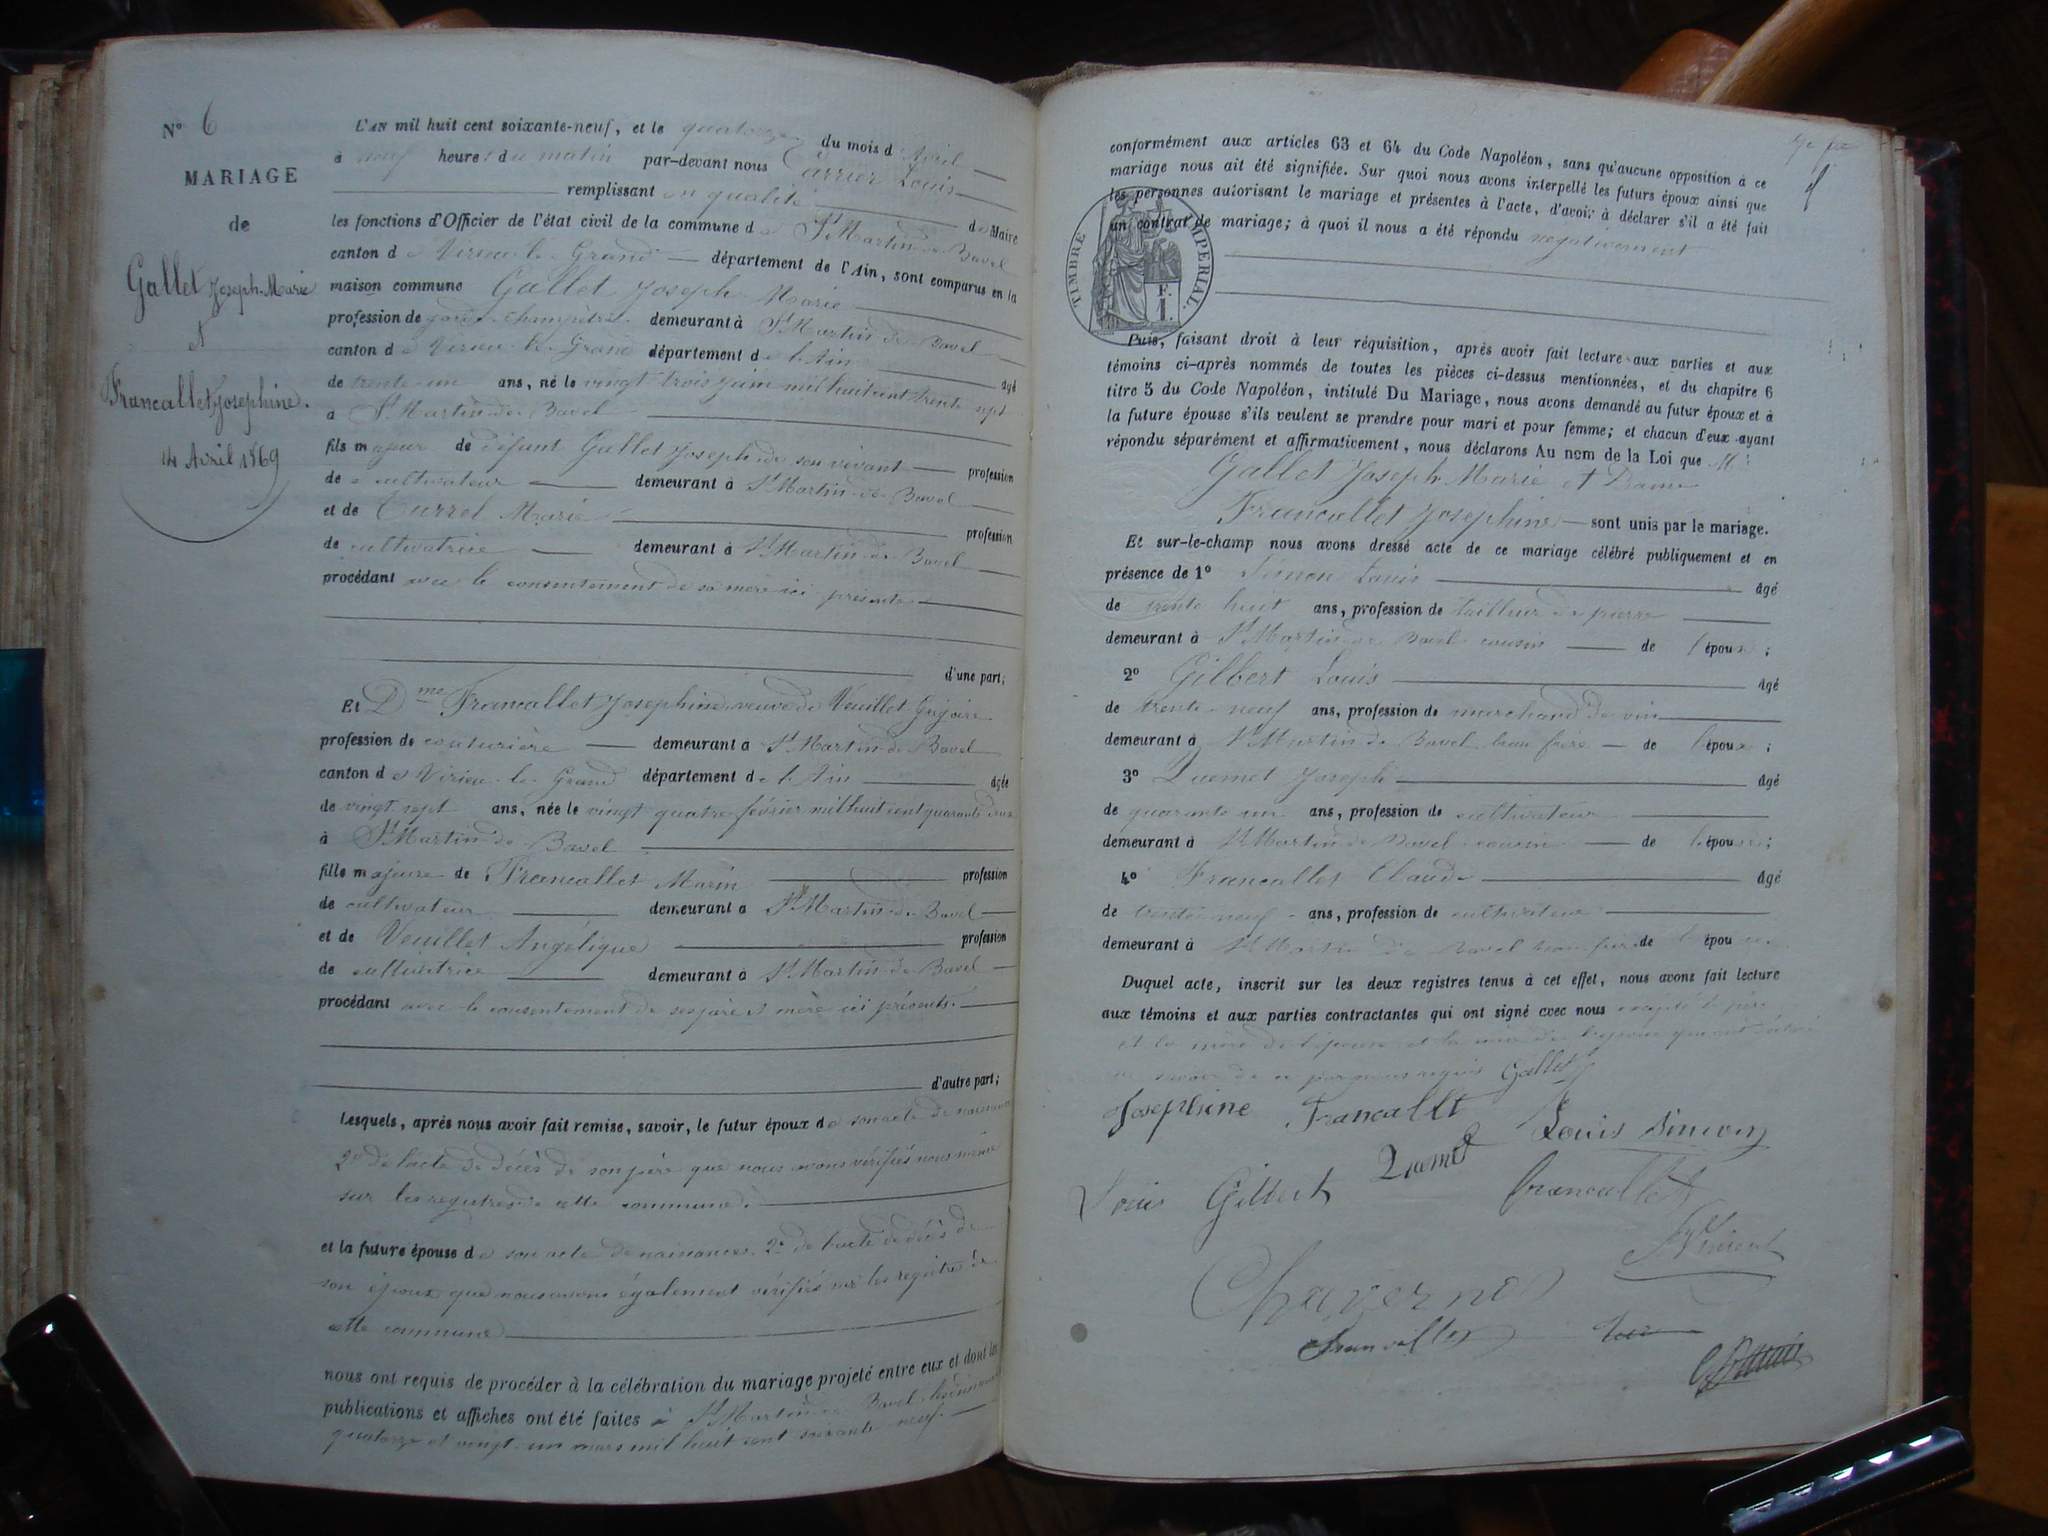 N° 6
MARIAGE
de
Gallet Joseph-Marie
&
Francallet Josephine.
14 Avril 1869
L'AN mil huit cent soixante-neuf, et le quatorze du mois d'Avril
à neuf heures du matin par-devant nous Carrier Louis
remplissant en qualité de Maire
les fonctions d'Officier de l'état civil de la commune de St Martin-de-Bavel
canton de Virieu-le-Grand département de l'Ain, sont comparus en la
maison commune Gallet Joseph-Marie
profession de garde-champêtre demeurant à St Martin-de-Bavel
canton de Virieu-le-Grand département de l'Ain âgé
de trente-un ans, né le vingt trois juin mil huit cent trente sept
à St Martin-de-Bavel
fils majeur de défunt Gallet Joseph de son vivant profession
de cultivateur demeurant à St Martin-de-Bavel
et de Turrel Marie profession
de cultivatrice demeurant à St Martin-de-Bavel
procédant avec le consentement de sa mère ici présente
d'une part;
Et Dme Francallet Josephine veuve de Veuillet Grégoire
profession de couturière demeurant à St Martin-de-Bavel
canton de Virieu-le-Grand département de l'Ain âgée
de vingt sept ans, née le vingt quatre février mil huit cent quarante deux
à St Martin-de-Bavel
fille majeure de Francallet Marin profession
de cultivateur demeurant à St Martin-de-Bavel
et de Veuillet Angélique profession
de cultivatrice demeurant à St Martin-de-Bavel
procédant avec le consentement de ses père & mère ici présents.
d'autre part;
Lesquels, après nous avoir fait remise, savoir, le futur époux de son acte de naissance
2° de l'acte de décès de son père que nous avons vérifiés nous même
sur les registres de cette commune.
et la future épouse de son acte de naissance, 2° de l'acte de décès de
son époux que nous avons également vérifiés sur les registres de
cette commune
nous ont requis de procéder à la célébration du mariage projeté entre eux et dont les
publications et affiches ont été faites à St Martin-de-Bavel les dimanches
quatorze et vingt-un mars mil huit cent soixante neuf.
conformément aux articles 63 et 64 du Code Napoléon, sans qu'aucune opposition à ce
mariage nous ait été signifiée. Sur quoi nous avons interpellé les futurs époux ainsi que
les personnes autorisant le mariage et présentes à l'acte, d'avoir à déclarer s'il a été fait
un contrat de mariage; à quoi il nous a été répondu négativement
TIMBRE IMPERIAL.
1 F.
Puis, faisant droit à leur réquisition, après avoir fait lecture aux parties et aux
témoins ci-après nommés de toutes les pièces ci-dessus mentionnées, et du chapitre 6
titre 5 du Code Napoléon, intitulé Du Mariage, nous avons demandé au futur époux et à
la future épouse s'ils veulent se prendre pour mari et pour femme; et chacun d'eux ayant
répondu séparément et affirmativement, nous déclarons Au nom de la Loi que Mr
Gallet Joseph-Marie et Dame
Francallet Josephine sont unis par le mariage.
Et sur-le-champ nous avons dressé acte de ce mariage célébré publiquement et en
présence de 1° Simon Louis âgé
de trente huit ans, profession de tailleur de pierre
demeurant à St Martin-de-Bavel cousin de l'époux;
2° Gilbert Louis âgé
de trente-neuf ans, profession de marchand de vin
demeurant à St Martin-de-Bavel beau frère de l'époux;
3° Quemet Joseph âgé
de quarante un ans, profession de cultivateur
demeurant à St Martin-de-Bavel cousin de l'épouse;
4° Francallet Claude âgé
de trente-neuf ans, profession de cultivateur
demeurant à St Martin-de-Bavel de l'épouse
Duquel acte, inscrit sur les deux registres tenus à cet effet, nous avons fait lecture
aux témoins et aux parties contractantes qui ont signé avec nous excepté le père
et la mère de l'épouse et la mère de l'époux qui ont déclaré
Gallet
Josephine Francallet Louis Simon
Louis Gilbert Quemet Francallet
Chavernoz